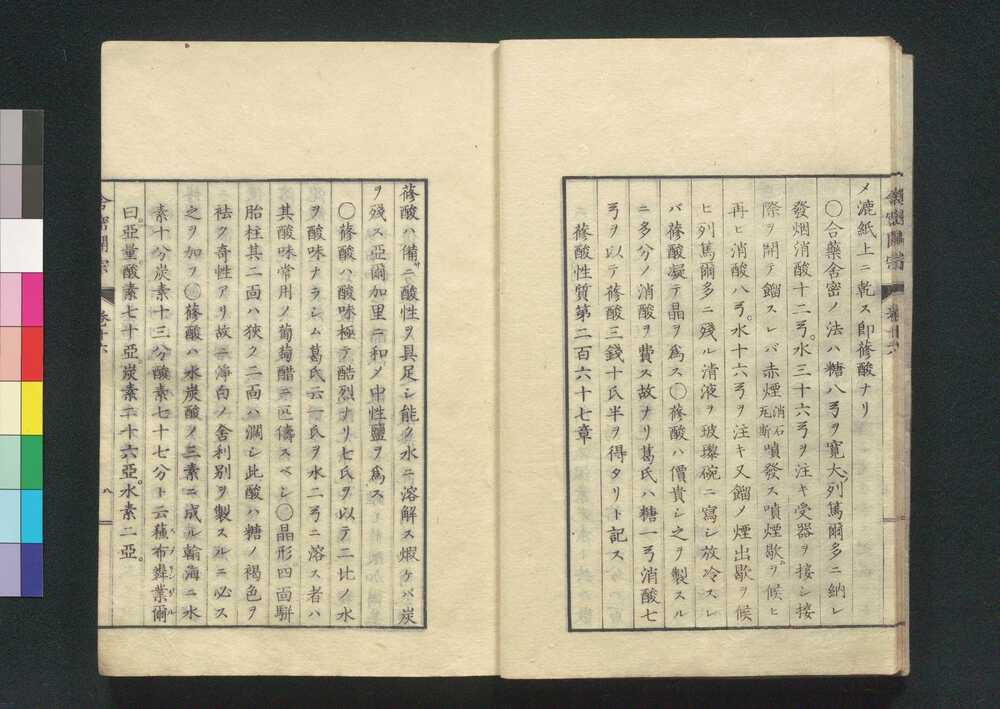 メ漉紙上ニ乾ス即蓚酸ナリ
〇合藥舍密ノ法ハ糖八弓ヲ寛大列篤爾多ニ納レ
發烟消酸十二弓。水三十六弓ヲ注キ受器ヲ接シ接
際ヲ開テ餾スレバ赤煙消石瓦斯噴發ス噴煙歇ムヲ候ヒ
再ヒ消酸八弓。水十六弓ヲ注キ又餾ノ煙出歇ヲ候
ヒ列篤爾多ニ残ル消液ヲ玻瓈碗ニ寫シ放冷スレ
バ蓚酸凝テ晶ヲ爲ス〇蓚酸ハ價貴シ之ヲ製スル
ニ多分ノ消酸ヲ費ス故ナリ葛氏ハ糖一弓消酸七
弓ヲ以テ蓚酸三錢十氏半ヲ得タリト記ス
蓚酸性質第二百六十七章
蓚酸ハ備ニ酸性ヲ具足シ能ク水ニ溶解ス煆ケバ炭
ヲ残ス亞爾加里ニ和メ中性鹽ヲ爲ス
〇蓚酸ハ酸味極テ酷烈ナリ七氏ヲ以テ二比ノ水
ヲ酸味ナラシム葛氏云一氏ヲ水二弓ニ溶ス者ハ
其酸味常用ノ葡萄醋ニ匹儔スベシ〇晶形四面駢
胎柱其二面ハ狹ク二面ハ濶シ此酸ハ糖ノ褐色ヲ
祛ク奇性アリ故ニ淨白ノ舍利別ヲ製スルニ必ス
之ヲ加フ〇蓚酸ハ水炭酸ノ三素ニ成ル韛海ニ水
素十分炭素十三分酸素七十七分ト云蘓布斖業爾
曰亞量酸素七十亞炭素二十六亞。水素二亞。
舍密開宗 卷十六 八